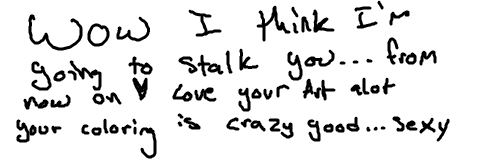 Wow I think I'm
going to stalk you... from
now on Love your Art alot
your coloring is crazy good... sexy